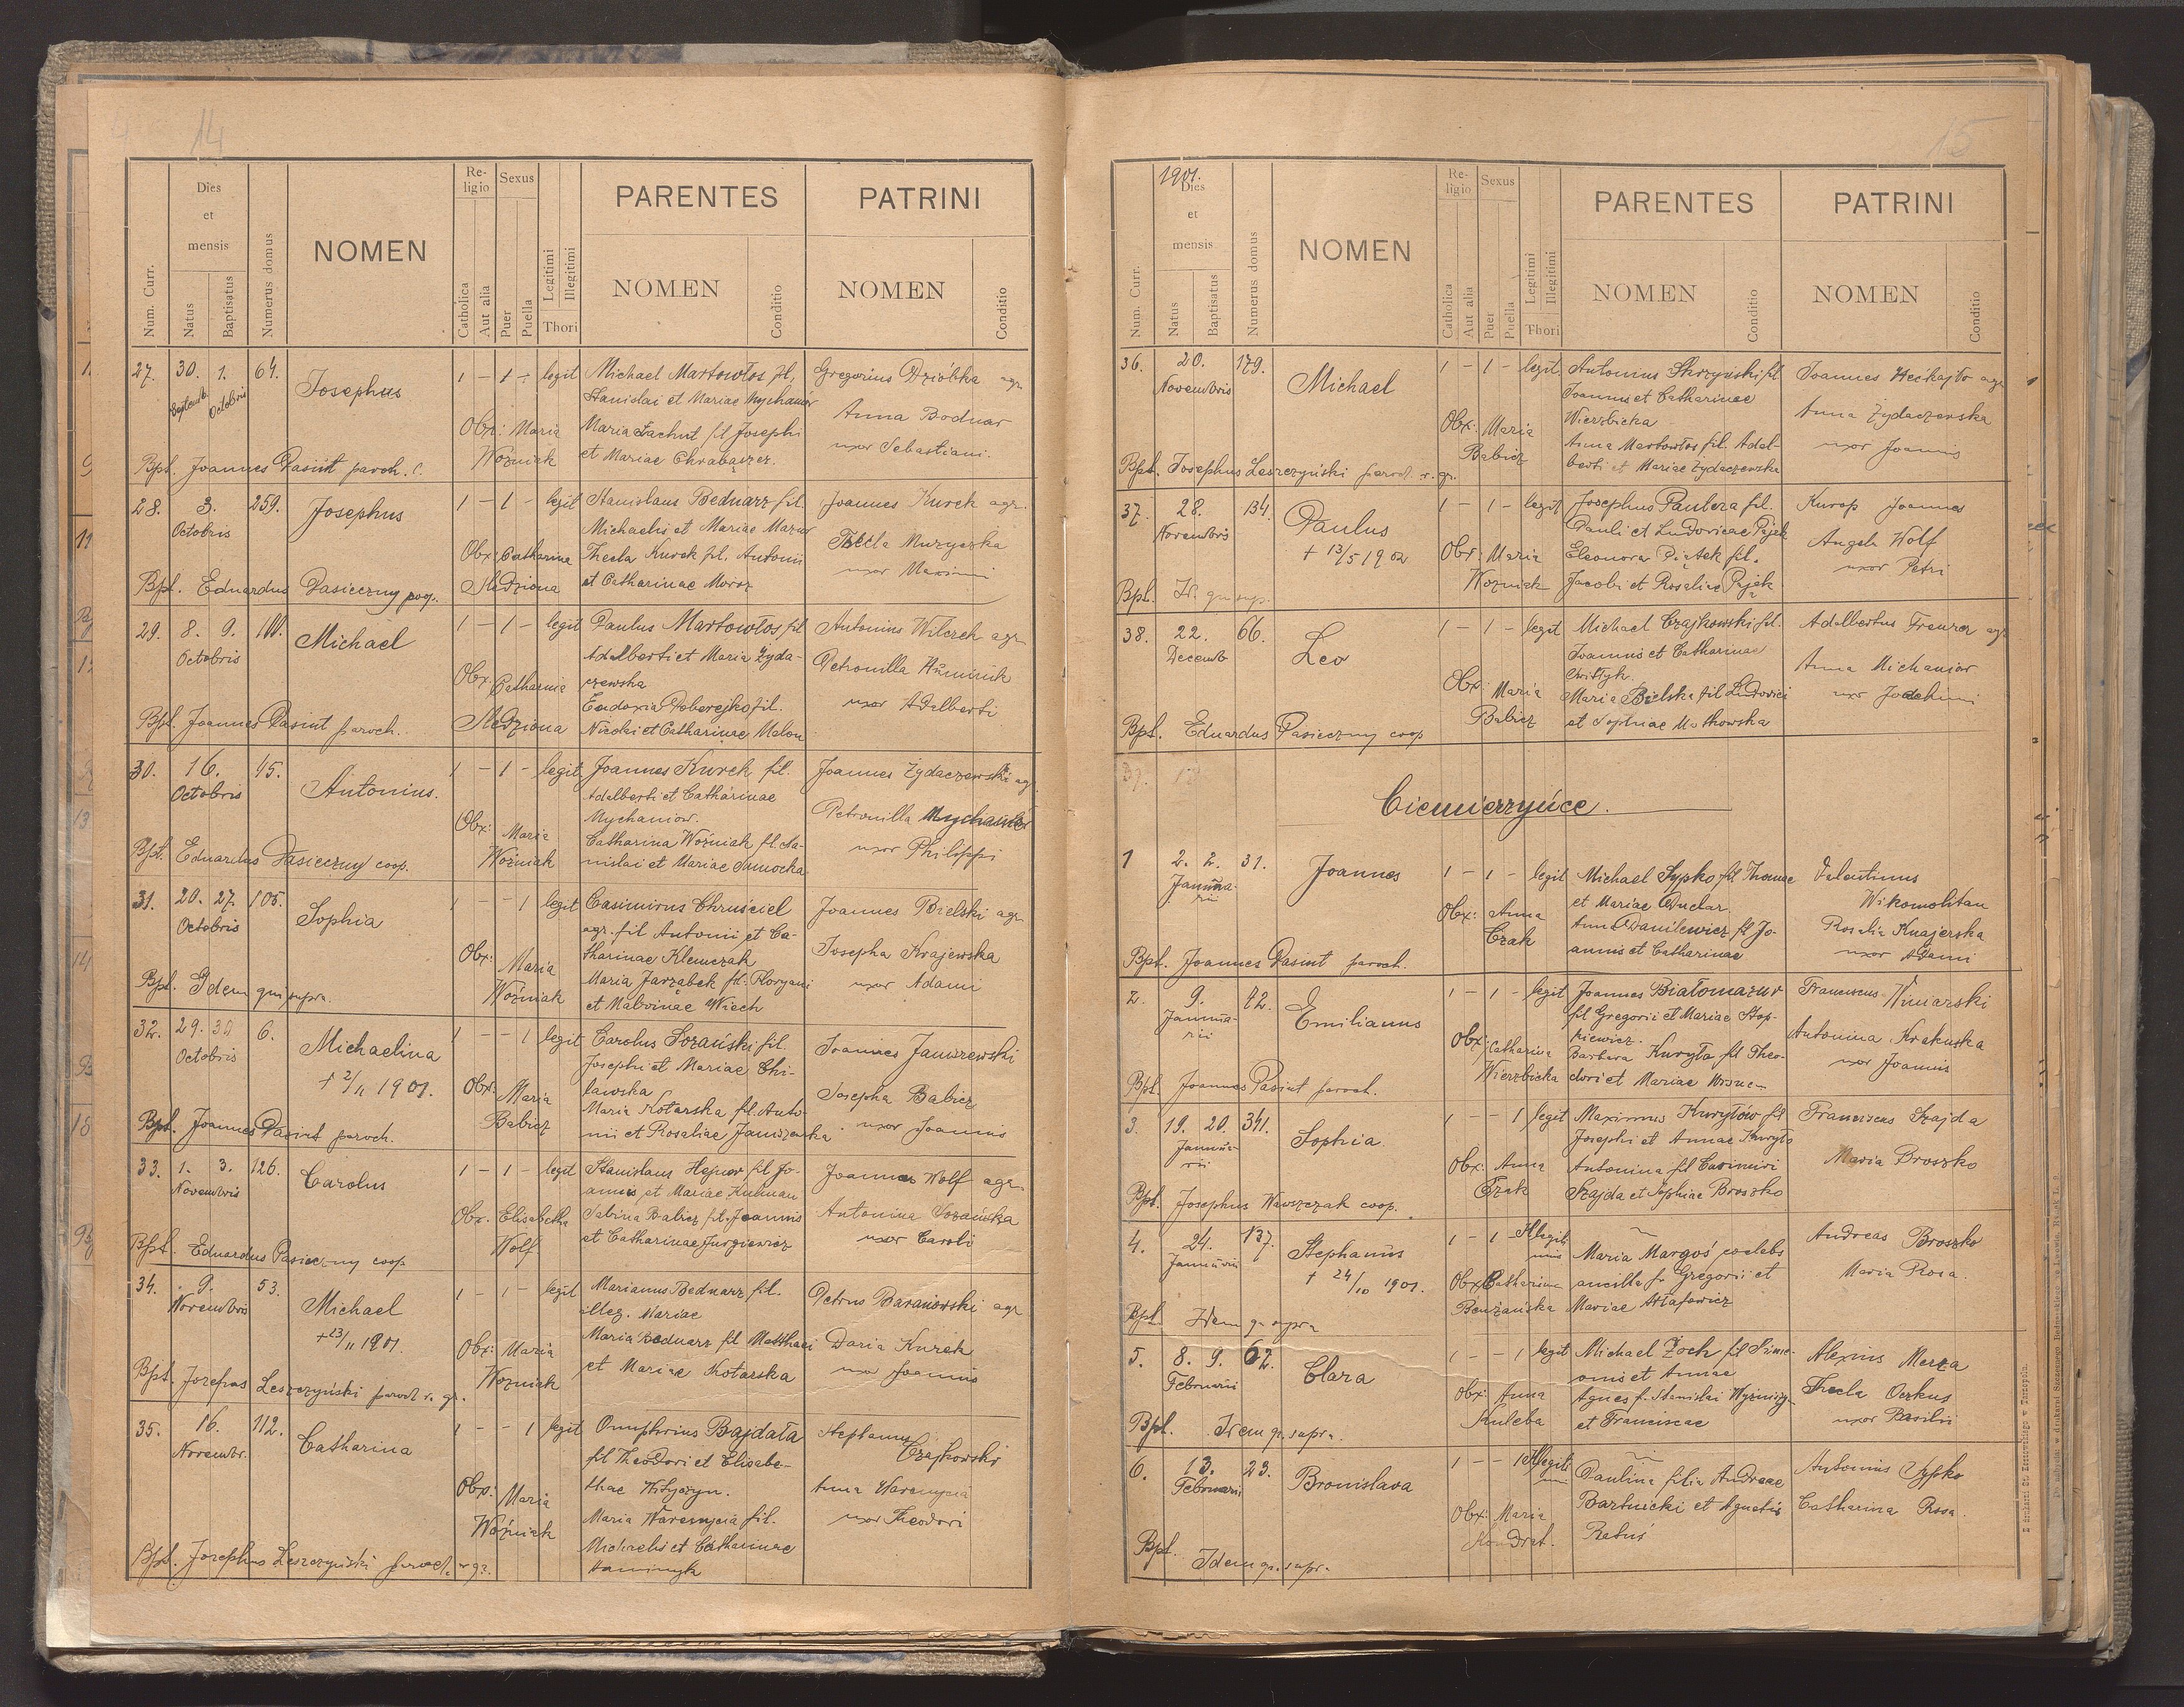 14
Num. Curr.
Dies
et
mensis
Natus
Baptisatus
Numerus domus
NOMEN
Religio
Catholica
Aut alia
Sexus
Puer
Puella
Legitimi
Illegitimi
Thori
PARENTES
NOMEN
Conditio
PATRINI
NOMEN
Conditio
27. 30. 1. 64. Josephus 1 – 1 – legit Michael Martowłos fil, Gregorius Dzióbka agr.
Septemb. Octobris Stanislai et Mariae Mychaniow
Anna Bodnar
Obx: Maria Maria Lachut fil Josephi uxor Sebastiani.
Woźniak et Mariae Chrabąszcz.
Bpt. Joannes Pasint paroch.
28. 3. 259. Josephus 1 – 1 – legit Stanislaus Bednarz fil. Joannes Kurek agr.
Octobris Michaelis et Mariae Mazur
Obx: Catharina Thecla Kurek fil. Antonii Thecla Muzyczka
Śledziona et Catharinae Moroz uxor Maximi
Bpt. Eduardus Pasieczny coop.
29. 8. 9. Michael 1 – 1 – legit Paulus Martowłos fil Antonius Wilczek agr
Octobris Adalberti et Maria Żyda- Petronilla
Obx: Catharina czewska uxor Adalberti
Śledziona Eudoxia Poberejko fil.
Bpt. Joannes Pasint paroch. Nicolai et Catharinae Malon
30. 16. 45. Antonius. 1 – 1 – legit Joannes Kurek fil. Joannes Żydaczewski agr.
Octobris Adalberti et Catharinae
Mychaniow. Petronilla Mychaniów
Obx: Maria Catharina Woźniak fil. Sta- uxor Philippi
Woźniak nislai et Mariae Sumocka
Bpt. Eduardus Pasieczny coop.
31. 20. 27. 105. Sophia 1 – – 1 legit Casimirus Chruściel Joannes Bielski agr
Octobris agr. fil Antonii et Ca-
Obx: Maria tharinae Klemczak Josepha Krajewska
Woźniak Maria Jarząbek fil. Floryani uxor Adami
Bpt. Idem qui supra. et Malvinae Wiech
32. 29. 30. 6. Michaelina 1 – – 1 legit Carolus Sozański fil. Joannes Janiszewski
Octobris Josephi et Mariae Chi-
† 2/11 1901. Obx: Maria lawska Josepha Babicz
Babicz Maria Kotarska fil. Anto- uxor Joannis
Bpt. Joannes Pasint paroch. nii et Rosaliae Janiszewska
33. 1. 3. 126. Carolus 1 – 1 – legit Stanislaus Hejnor fil Jo- Joannes Wolf agr
Novembris annis et Mariae Kulman
Obx: Elisabetha Sabina Babicz fil. Joannis Antonina Sozańska
Wolf et Catharinae Jurgiewicz uxor Caroli
Bpt. Eduardus Pasieczny coop
34. 9. 53. Michael 1 – 1 – legit Marianus Bednarz fil. Petrus Baranowski agr
Novembris illeg. Mariae
† 23/11 1901. Obx: Maria Maria Bednarz fil Matthaei Daria Kurek
Woźniak et Mariae Kotarska uxor Joannis
Bpt. Josephus Leszczyński paroch r. gr.
35. 16. 112. Catharina 1 – – 1 legit Onuphrius Bajdała Stephanus
Novembr. fil Theodori et Elisabe- Czajkowski
Obx: Maria thae Anna Warenycia
Woźniak Maria Warenycia fil. uxor Theodori
Michaelis et Catharinae
Bpt. Josephus Leszczyński paroch r. gr.
15
1901.
Num. Curr.
Dies
et
mensis
Natus
Baptisatus
Numerus domus
NOMEN
Religio
Catholica
Aut alia
Sexus
Puer
Puella
Legitimi
Illegitimi
Thori
PARENTES
NOMEN
Conditio
PATRINI
NOMEN
Conditio
36. 20. 179. Michael 1 – 1 – legit Antonius Skrzyński fil Joannes agr
Novembris Joannis et Catharinae
Wierzbicka Anna Żydaczewska
Obx: Maria Anna Martowłos fil. Adal- uxor Joannis
Babicz berti et Mariae Żydaczewska
Bpt. Josephus Leszczyński paroch. r. gr.
37. 28. 134. Paulus 1 – 1 – legit Josephus Pantera fil. Kurop Joannes
Novembris Pauli et Ludovicae Pająk
† 13/5 1902 Obx: Maria Eleonora Piątek fil. Angela Wolf
Woźniak Jacobi et Rosaliae Pająk uxor Petri
Bpt. Id. qui sup.
38. 22. 66. Leo 1 – 1 – legit Michael Czajkowski fil. Adalbertus agr
Decemb Joannis et Catharinae
Anna Michaniow
Obx: Maria Maria Bielska fil Ludovici uxor Joachimi
Babicz et Sophiae Matkowska
Bpt. Eduardus Pasieczny coop
Ciemierzyńce.
1 2. 2. 31. Joannes 1 – 1 – legit Michael Sypko fil Thomae Valentinus
Januarii et Mariae Wikomolitan
Obx: Anna Anna Danilewicz fil Jo- Rosalia Knajerska
Czak annis et Catharinae uxor Adami
Bpt. Joannes Pasint paroch.
2. 9. 72. Emilianus 1 – 1 – legit Joannes Białomazur Franciscus
Januarii fil Gregorii et Mariae Stop-
Obx: Catharina kiewicz. Antonina Krakuska
Wierzbicka Barbara Kuryła fil Theo- uxor Joannis
dori et Mariae
Bpt. Joannes Pasint paroch.
3. 19. 20. 341. Sophia 1 – – 1 legit Maximus Kuryłów fil Franciscus Szajda
Januarii Josephi et Annae Kuryło
Obx: Anna Antonina fil Casimiri Maria Broszko
Czak Szajda et Sophiae Broszko
Bpt. Josephus Wawszczak coop.
4. 24. 137. Stephanus 1 – 1 – Illegitimus Andreas Broszko
Januarii Maria Margoś coelebs Maria Rosa
† 24/10 1901. Obx: Catharina ancilla fil Gregorii et
Mariae
Bpt. Idem qu supra
5. 8. 9. 62. Clara 1 – – 1 legit Michael Żoch fil Sime- Alexius Merza
Februarii onis et Annae
Obx: Anna Agnes f. Stanislai Thecla Oczkus
Kuleba et Franciscae uxor Basilii
Bpt. Idem q. supra.
6. 13. 23. Bronislava 1 – – 1 Illegitima Antonius Sypko
Februarii Paulina filia Andreae
Obx: Maria Bartnicki et Agnetis Catharina Rosa.
Kondrat. Ratuś
Bpt. Idem q. supra